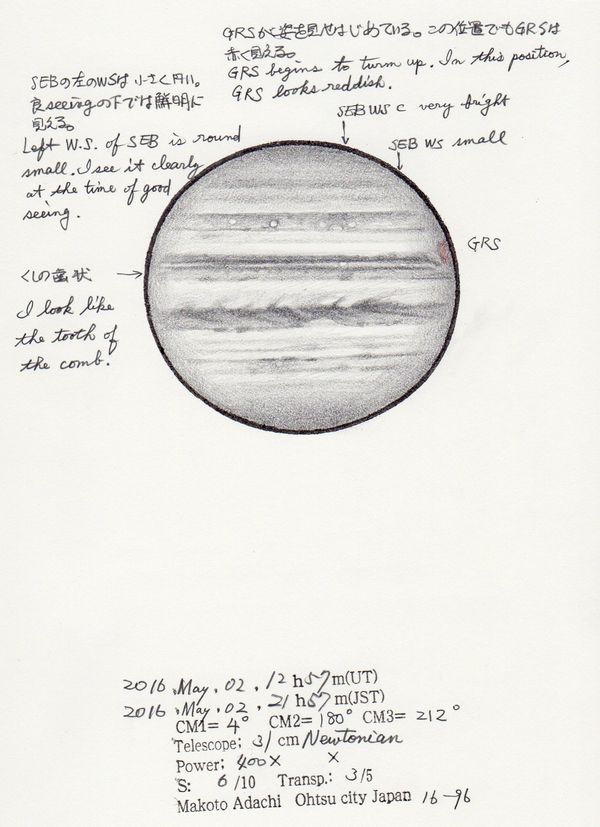 GRSが姿を見せはじめている。この位置でもGRSは
赤く見える。
GRS begins to turn up. In this position,
GRS looks reddish.
SEBの左のWSは小さく円い。
良seeingの下では鮮明に
見える。
Left W.S. of SEB is round
small. I see it clearly
at the time of good
seeing.
SEB WS c very bright
SEB WS small
GRS
くしの歯状
I look like
the tooth of
the comb.
2016 .May. 02 . 12 h 57 m(UT)
2016 .May. 02 . 21 h 57 m(JST)
CM1= 4° CM2= 180° CM3= 212°
Telescope; 31 cm Newtonian
Power; 400× ×
S: 6 /10 Transp.: 3/5
Makoto Adachi Ohtsu city Japan 16-96